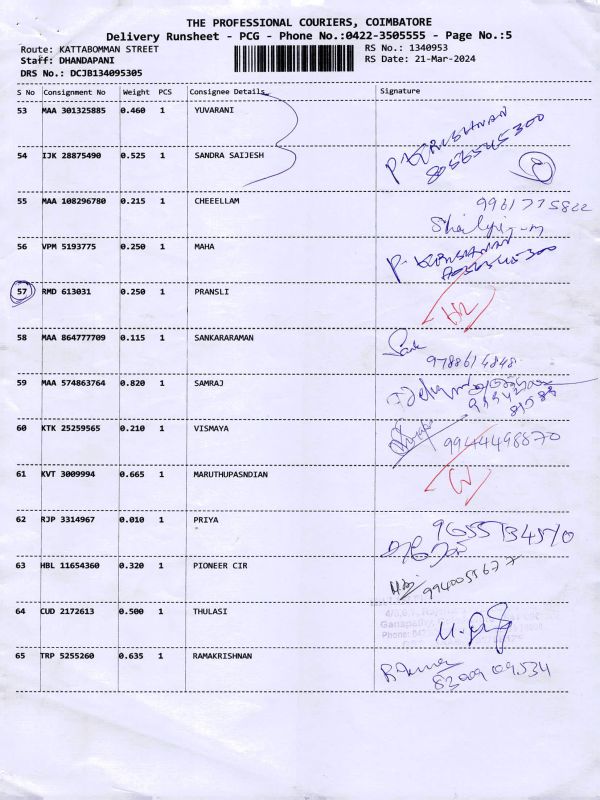 THE PROFESSIONAL COURIERS, COIMBATORE
Delivery Runsheet - PCG - Phone No.:0422-3505555 - Page No.:5
Route: KATTABOMMAN STREET RS No.: 1340953
Staff: DHANDAPANI RS Date: 21-Mar-2024
DRS No.: DCJB134095305
S No Consignment No Weight PCS Consignee Details Signature
53 MAA 301325885 0.460 1 YUVARANI
54 IJK 28875490 0.525 1 SANDRA SAIJESH
55 MAA 108296780 0.215 1 CHEEELLAM
56 VPM 5193775 0.250 1 MAHA
57 RMD 613031 0.250 1 PRANSLI
58 MAA 864777709 0.115 1 SANKARARAMAN
9788614848
59 MAA 574863764 0.820 1 SAMRAJ
60 KTK 25259565 0.210 1 VISMAYA 9944498870
61 KVT 3009994 0.665 1 MARUTHUPASNDIAN
62 RJP 3314967 0.010 1 PRIYA
63 HBL 11654360 0.320 1 PIONEER CIR 9940055677
64 CUD 2172613 0.500 1 THULASI
65 TRP 5255260 0.635 1 RAMAKRISHNAN